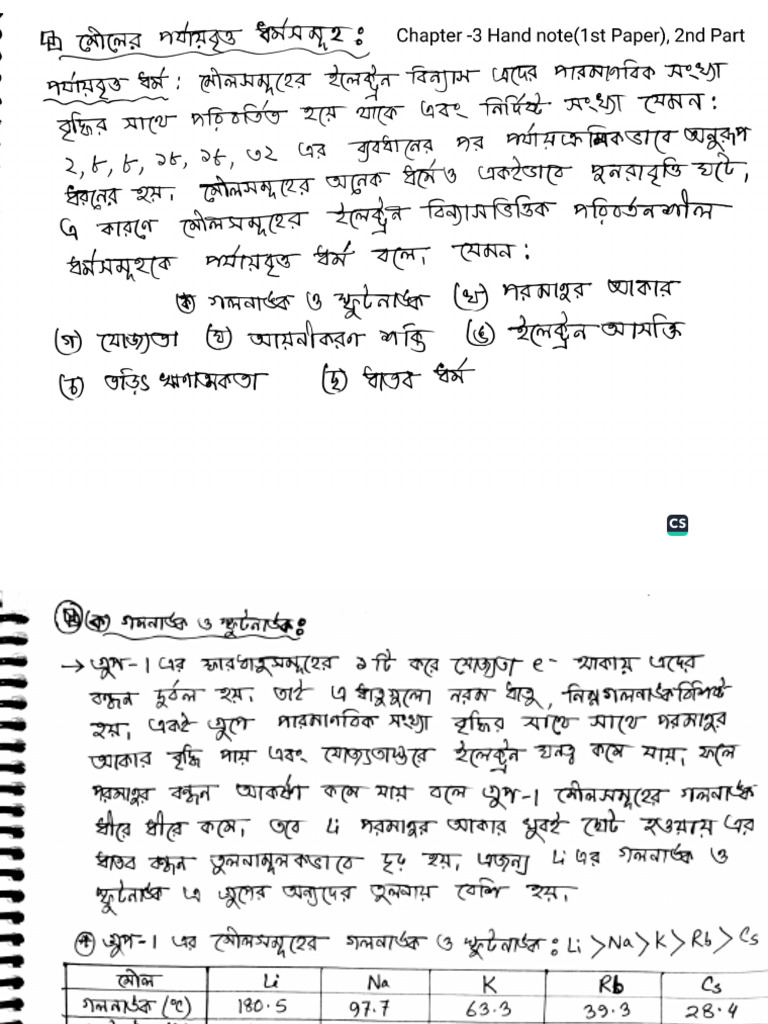 মৌলের পর্যায়বৃত্ত ধর্মসমূহ :
Chapter -3 Hand note(1st Paper), 2nd Part
পর্যায়বৃত্ত ধর্ম : মৌলসমূহের ইলেকট্রন বিন্যাস এদের পারমাণবিক সংখ্যা
বৃদ্ধির সাথে পরিবর্তিত হয়ে থাকে এবং নির্দিষ্ট সংখ্যা যেমন :
২, ৮, ৮, ১৮, ১৮, ৩২ এর ব্যবধানের পর পর্যায়ক্রমিকভাবে অনুরূপ
ধরনের হয়। মৌলসমূহের অনেক ধর্মেও একইভাবে পুনরাবৃত্তি ঘটে,
এ কারণে মৌলসমূহের ইলেকট্রন বিন্যাসভিত্তিক পরিবর্তনশীল
ধর্মসমূহকে পর্যায়বৃত্ত ধর্ম বলে। যেমন :
(ক) গলনাঙ্ক ও স্ফুটনাঙ্ক (খ) পরমাণুর আকার
(গ) যোজ্যতা (ঘ) আয়নীকরণ শক্তি (ঙ) ইলেকট্রন আসক্তি
(চ) তড়িৎ ঋণাত্মকতা (ছ) ধাতব ধর্ম
CS
(ক) গলনাঙ্ক ও স্ফুটনাঙ্ক :
→ গ্রুপ-1 এর ক্ষারধাতুসমূহের ১টি করে যোজ্যতা e- থাকায় এদের
বন্ধন দুর্বল হয়। তাই এ ধাতুগুলো নরম ধাতু, নিম্ন গলনাঙ্কবিশিষ্ট
হয়, একই গ্রুপে পারমাণবিক সংখ্যা বৃদ্ধির সাথে সাথে পরমাণুর
আকার বৃদ্ধি পায় এবং যোজ্যতাস্তরে ইলেকট্রন ঘনত্ব কমে যায়, ফলে
পরমাণুর বন্ধন আকর্ষণ কমে যায় বলে গ্রুপ-1 মৌলসমূহের গলনাঙ্ক
ধীরে ধীরে কমে, তবে Li পরমাণুর আকার খুবই ছোট হওয়ায় এর
ধাতব বন্ধন তুলনামূলকভাবে দৃঢ় হয়, এজন্য Li এর গলনাঙ্ক ও
স্ফুটনাঙ্ক এ গ্রুপের অন্যদের তুলনায় বেশি হয়।
গ্রুপ-1 এর মৌলসমূহের গলনাঙ্ক ও স্ফুটনাঙ্ক : Li > Na > K > Rb > Cs
মৌল Li Na K Rb Cs
গলনাঙ্ক (°C) 180.5 97.7 63.3 39.3 28.4